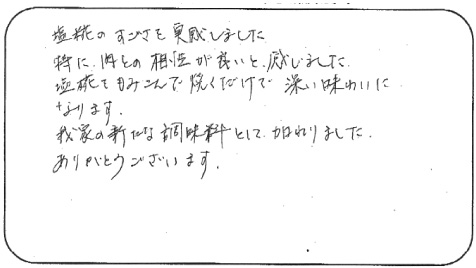 塩糀のすごさを実感しました
特に、肉との相性が良いと、感じました.
塩糀をもみこんで焼くだけで 深い味わいに
なります.
我家の新たな調味料として加わりました.
ありがとうございます.